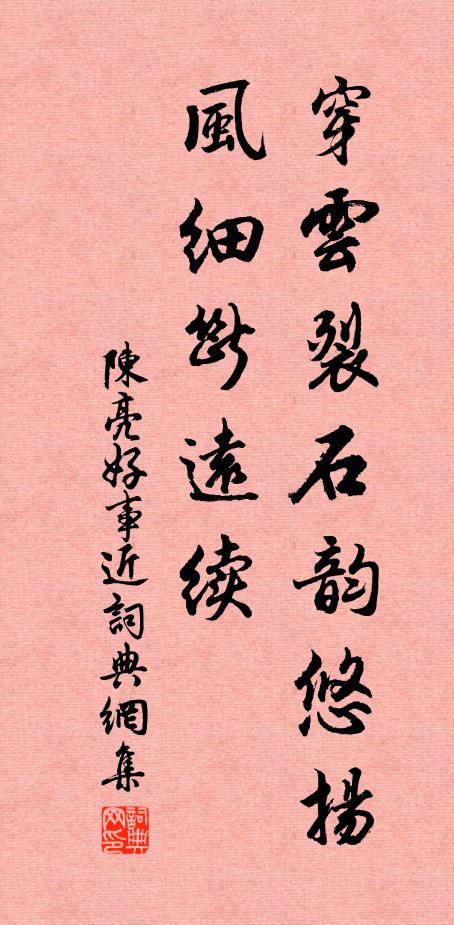 穿雲裂石韵悠揚
風細斷遠續
陳亮好事近詞典網集
詞典网印